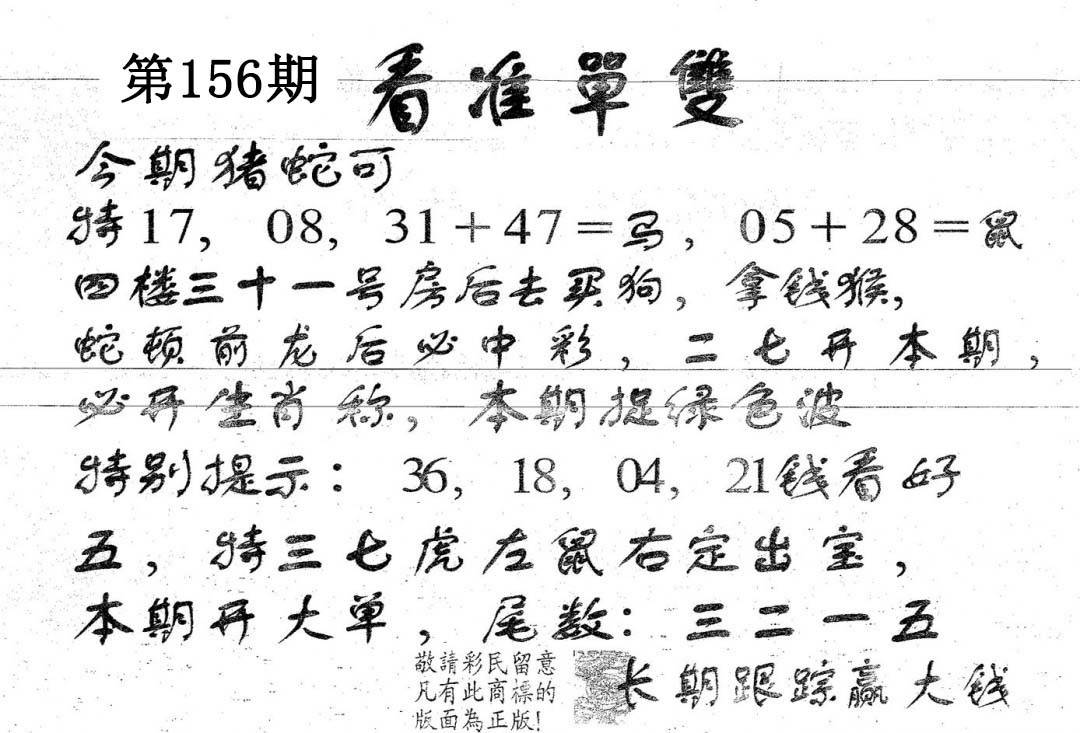 第156期 看准單雙
今期猪蛇可
特17, 08, 31+47=马, 05+28=鼠
四楼三十一号房后去买狗,拿钱猴,
蛇顿前龙后必中彩,二七开本期,
必开生肖称,本期捉绿色波
特别提示: 36, 18, 04, 21钱看好
五,特三七虎左鼠右定出宝,
本期开大单,尾数:三二一五
敬請彩民留意
凡有此商標的
版面為正版!
长期跟踪赢大钱